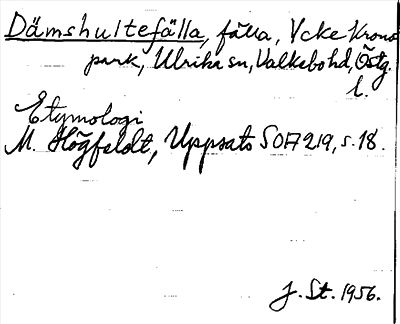 Dämshultefälla, fälla, Ycke Krono
park, Ulrika sn, Valkebo hd, Östg.
l.
Etymologi
M. Högfeldt, Uppsats SOA 219, s. 18.
J. St. 1956.